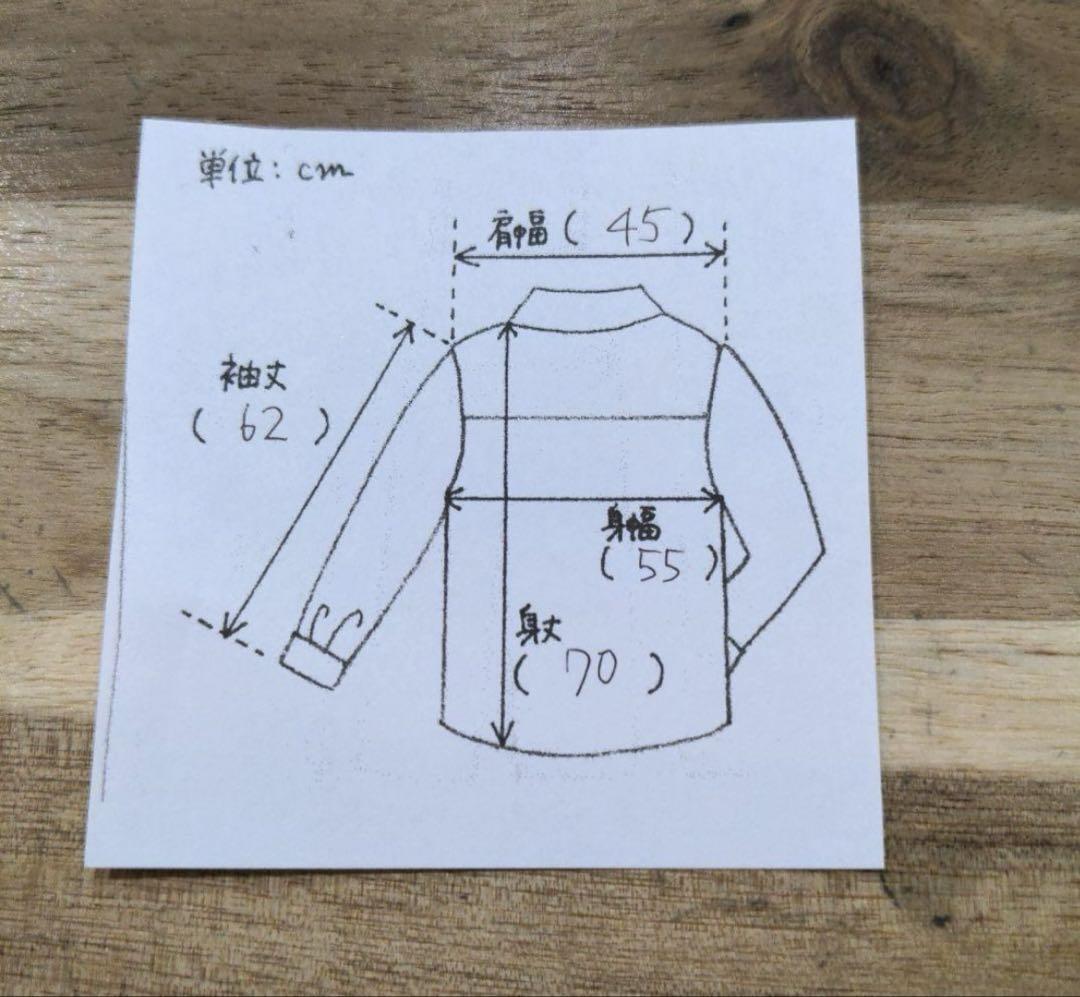 単位：cm
肩幅（ 45 ）
袖丈
（ 62 ）
身幅
（ 55 ）
身丈
（ 70 ）